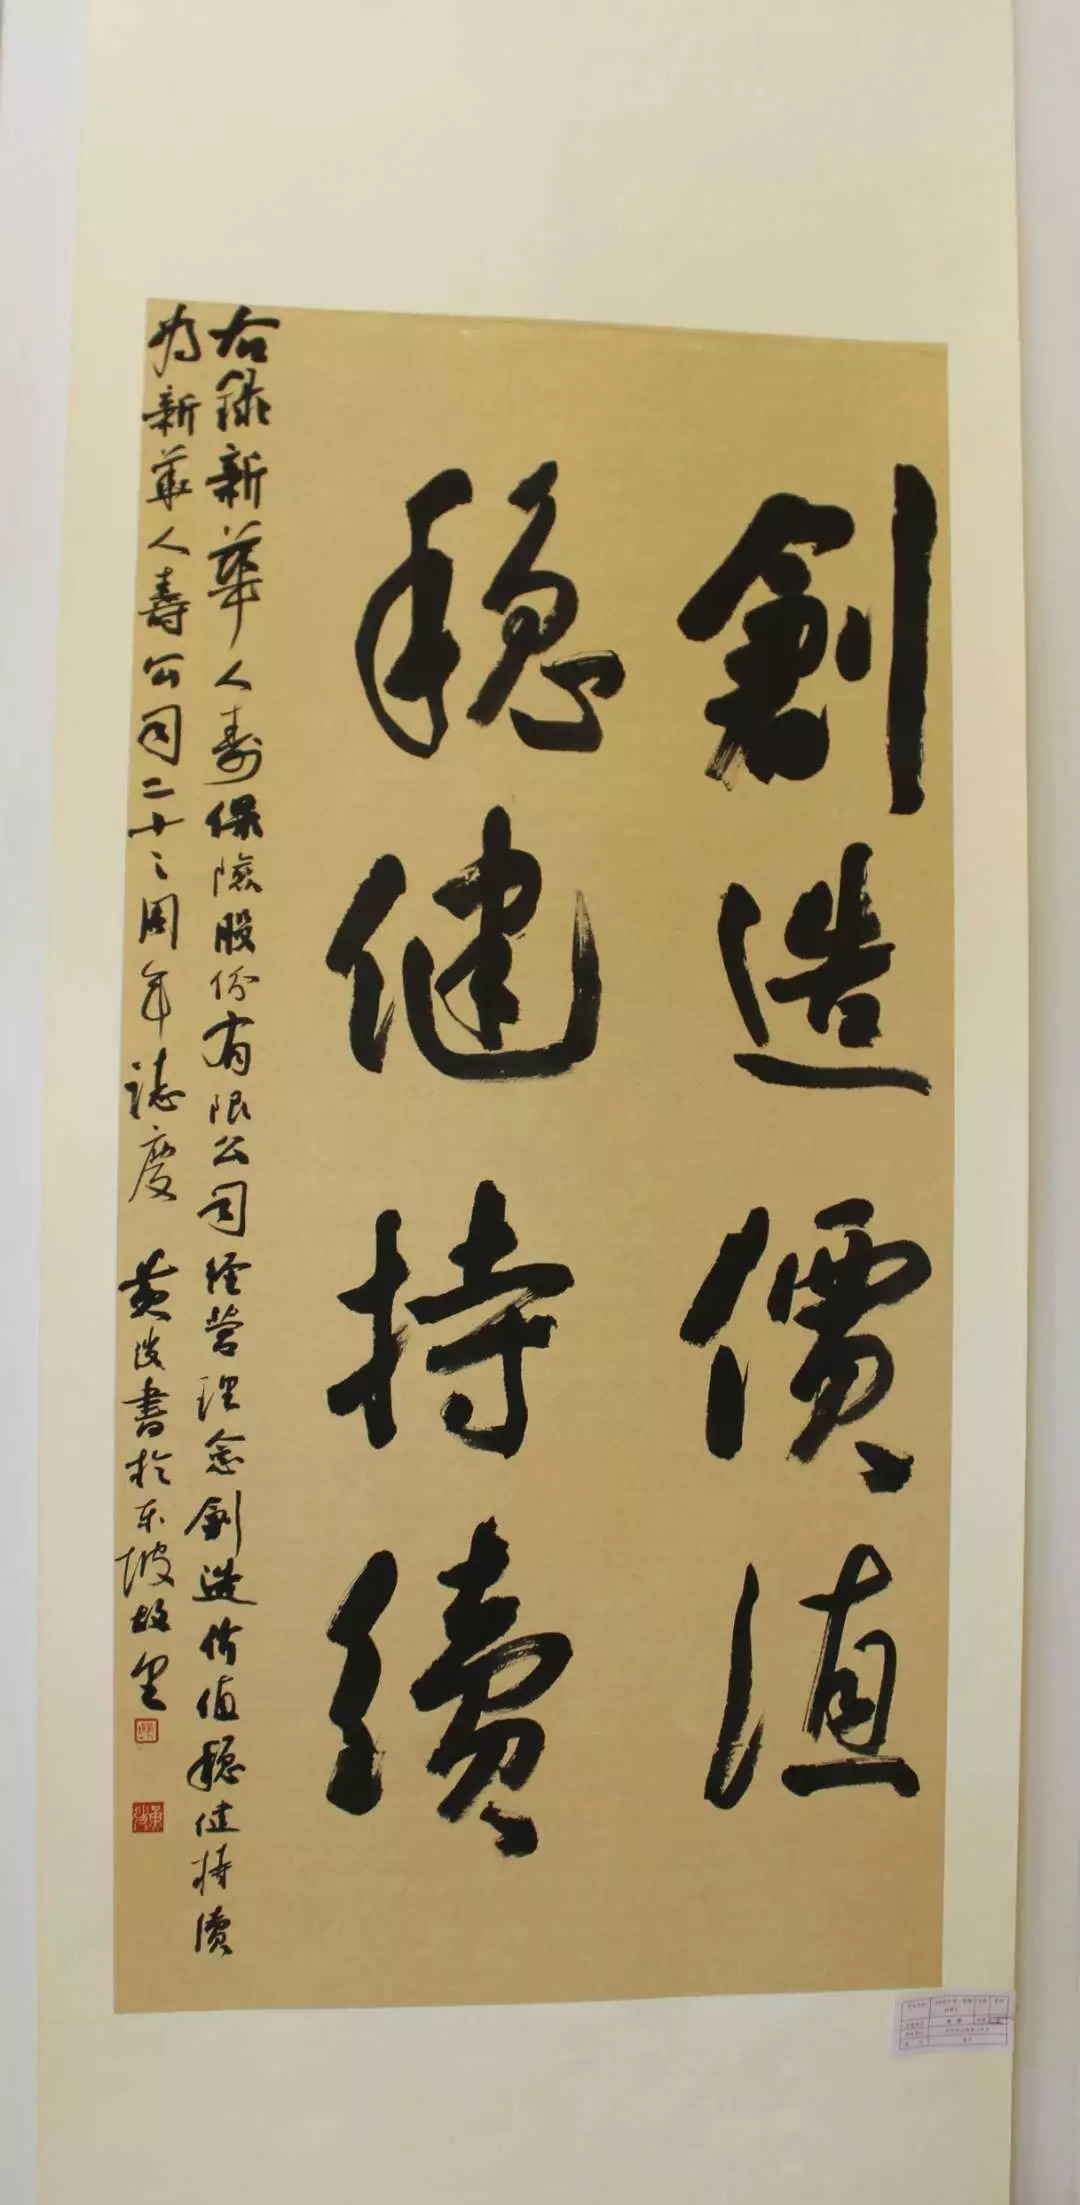 創造價值
稳健持續
右録新華人寿保險股份有限公司经营理念創造价值稳健持續
为新華人壽公司二十二周年誌慶 黄波書於东坡故里